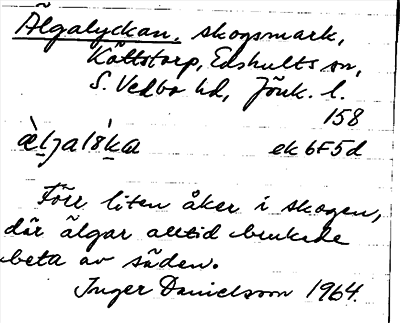 Älgalyckan, skogsmark,
Köttstorp, Edshults sn,
S. Vedbo hd, Jönk. l.
158
æ̀lɟalȣ́ka ek 6F5d
Förr liten åker i skogen,
där älgar alltid brukade
beta av säden.
Inger Danielsson 1964.